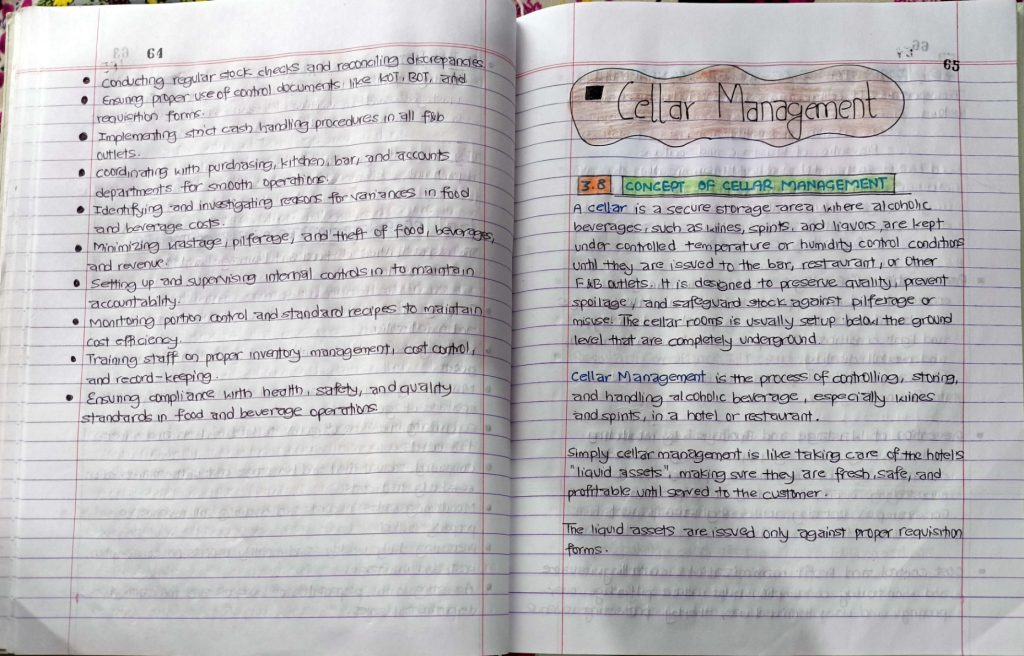 64
conducting regular stock checks and reconciling discrepancies
Ensuring proper use of control documents like KOT, BOT, and
requisition forms.
Implementing strict cash handling procedures in all f&b
outlets.
coordinating with purchasing, kitchen, bar, and accounts
departments for smooth operations.
Identifying and investigating reasons for variances in food
and beverage costs.
Minimizing wastage, pilferage, and theft of food, beverages,
and revenue.
Setting up and supervising internal controls in to maintain
accountability.
Monitoring portion control and standard recipes to maintain
cost efficiency.
Training staff on proper inventory management, cost control,
and record-keeping.
Ensuring compliance with health, safety, and quality
standards in food and beverage operations
65
Cellar Management
3.8 CONCEPT OF CELLAR MANAGEMENT
A cellar is a secure storage area where alcoholic
beverages, such as wines, spirits, and liquors are kept
under controlled temperature or humidity control conditions
until they are issued to the bar, restaurant, or other
F&B outlets. It is designed to preserve quality, prevent
spoilage, and safeguard stock against pilferage or
misuse. The cellar rooms is usually setup below the ground
level that are completely underground.
Cellar Management is the process of controlling, storing,
and handling alcoholic beverage, especially wines
and spirits, in a hotel or restaurant.
Simply cellar management is like taking care of the hotels
"liquid assets", making sure they are fresh, safe, and
profitable until served to the customer.
The liquid assets are issued only against proper requisition
forms.